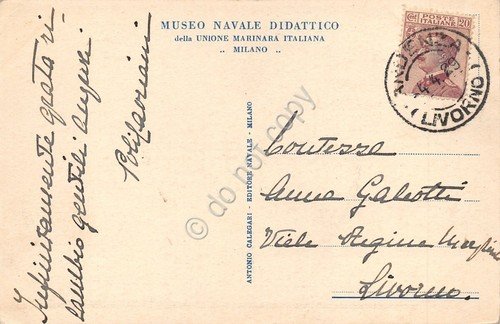 MUSEO NAVALE DIDATTICO
della UNIONE MARINARA ITALIANA
„ MILANO „
POSTE ITALIANE
20
LIVORNO
Infinitamente grata ri-
cambio gentili auguri
ANTONIO CALEGARI - EDITORE NAVALE - MILANO
© do not copy
Contessa
Anna Galeotti
Viale Regina
Livorno